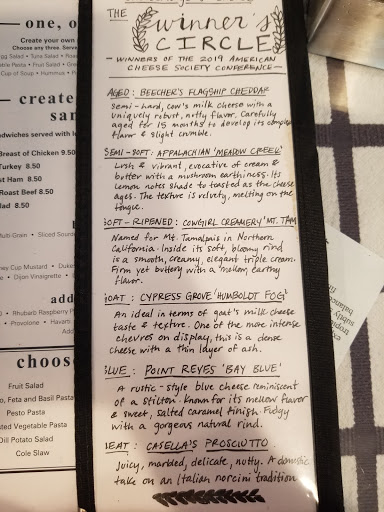 — one, o
Create your own
Choose any three. Serve
Egg Salad • Tuna Salad • Roas
Pasta • Fruit Salad • Gree
Cup of Soup • Hummus •
create
sar
dwiches served with l
Breast of Chicken 9.50
Turkey 8.50
Ham 8.50
Roast Beef 8.50
lad 8.50
Multi-Grain • Sliced Sourd
ney Cup Mustard • Duke
Dijon Vinaigrette •
add
Rhubarb Raspberry
• Provolone • Havarti
Add
choos
Fruit Salad
o, Feta and Basil Pasta
Pesto Pasta
sted Vegetable Pasta
Dill Potato Salad
Cole Slaw
THE
winner's
CIRCLE
– WINNERS OF THE 2019 AMERICAN
CHEESE SOCIETY CONFERENCE –
AGED: BEECHER'S FLAGSHIP CHEDDAR
Semi-hard, cow's milk cheese with a
uniquely robust, nutty flavor. Carefully
aged for 15 months to develop its complex
flavor & slight crumble.
SEMI-SOFT: APPALACHIAN 'MEADOW CREEK'
Lush & vibrant, evocative of cream &
butter with a mushroom earthiness. Its
lemon notes shade to toasted as the cheese
ages. The texture is velvety, melting on the
tongue.
SOFT-RIPENED: COWGIRL CREAMERY 'MT. TAM
Named for Mt. Tamalpais in Northern
California. Inside its soft, bloomy rind
is a smooth, creamy, elegant triple cream.
Firm yet buttery with a mellow, earthy
flavor.
GOAT: CYPRESS GROVE 'HUMBOLDT FOG'
An ideal in terms of goat's milk cheese
taste & texture. One of the more intense
chevres on display, this is a dense
cheese with a thin layer of ash.
BLUE: POINT REYES 'BAY BLUE'
A rustic-style blue cheese reminiscent
of a Stilton. Known for its mellow flavor
& sweet, salted caramel finish. Fudgy
with a gorgeous natural rind.
MEAT: CASELLA'S PROSCIUTTO
Juicy, marbled, delicate, nutty. A domestic
take on an Italian norcini tradition